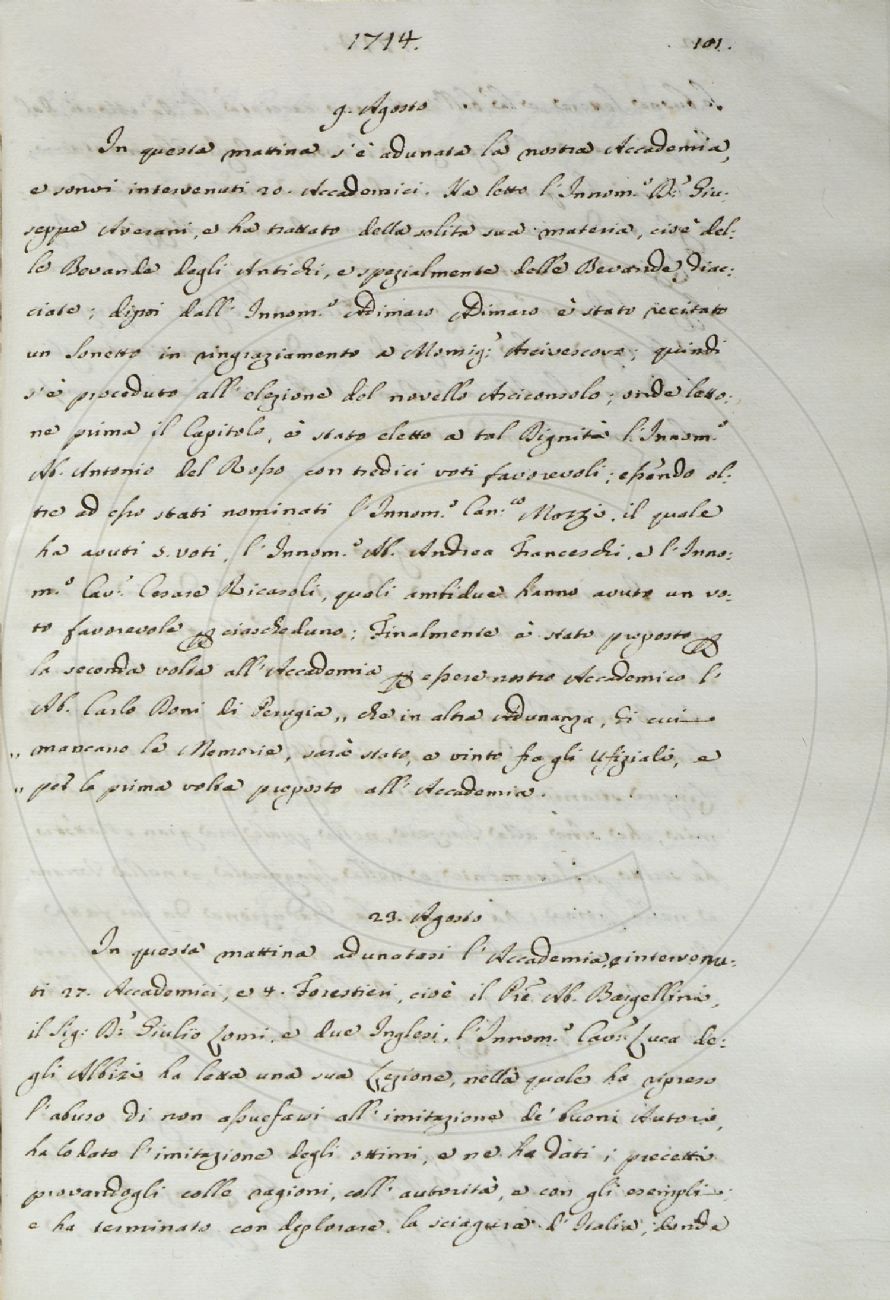 1714. 101.
9. Agosto
In questa mattina s'è adunata la nostra Accademia,
e sonvi intervenuti 20. Accademici. Ha letto l'Innom.º D.r Giu-
seppe Averani, e ha trattato della solita sua materia, cioè del-
le Bevande degli Antichi, e spezialmente delle Bevande Diac-
ciate; dipoi dall'Innom.º Adimaro Adimari è stato recitato
un Sonetto in ringraziamento a Monsig.r Arcivescovo; quindi
s'è proceduto all'elezione del novello Arciconsolo; onde letto-
ne prima il Capitolo, è stato eletto a tal Dignità l'Innom.º
Ab. Antonio del Rosso con tredici voti favorevoli; essendo ol-
tre ad esso stati nominati l'Innom.º Can.co Mozzi, il quale
ha avuti 5. voti, l'Innom.º Ab. Andrea Franceschi, e l'Inno-
m.º Cav.r Cesare Ricasoli, quali ambidue hanno avuto un vo-
to favorevole p ciascheduno; Finalmente è stato proposto p
la seconda volta all'Accademia p essere nostro Accademico l'
Ab. Carlo Doni di Perugia „ che in altra Adunanza, di cui
„ mancano le Memorie, sarà stato, e vinto fra gli Ufiziali, e
„ per la prima volta proposto all'Accademia.
23. Agosto
In questa mattina adunatasi l'Accademia, e intervenu-
ti 27. Accademici, e 4. Forestieri, cioè il Ab. Bargellini,
il Sig: D.r Giulio Lomi, e due Inglesi, l'Innom.º Cav.r Luca de-
gli Albizi ha letta una sua Lezione, nella quale ha ripreso
l'abuso di non assuefarsi all'imitazione de' buoni Autori,
ha lodato l'imitazione degli ottimi, e ne ha dati i precetti
provandogli colle ragioni, coll'autorità, e con gli esempli
e ha terminato con deplorare la sciagura d'Italia, donde